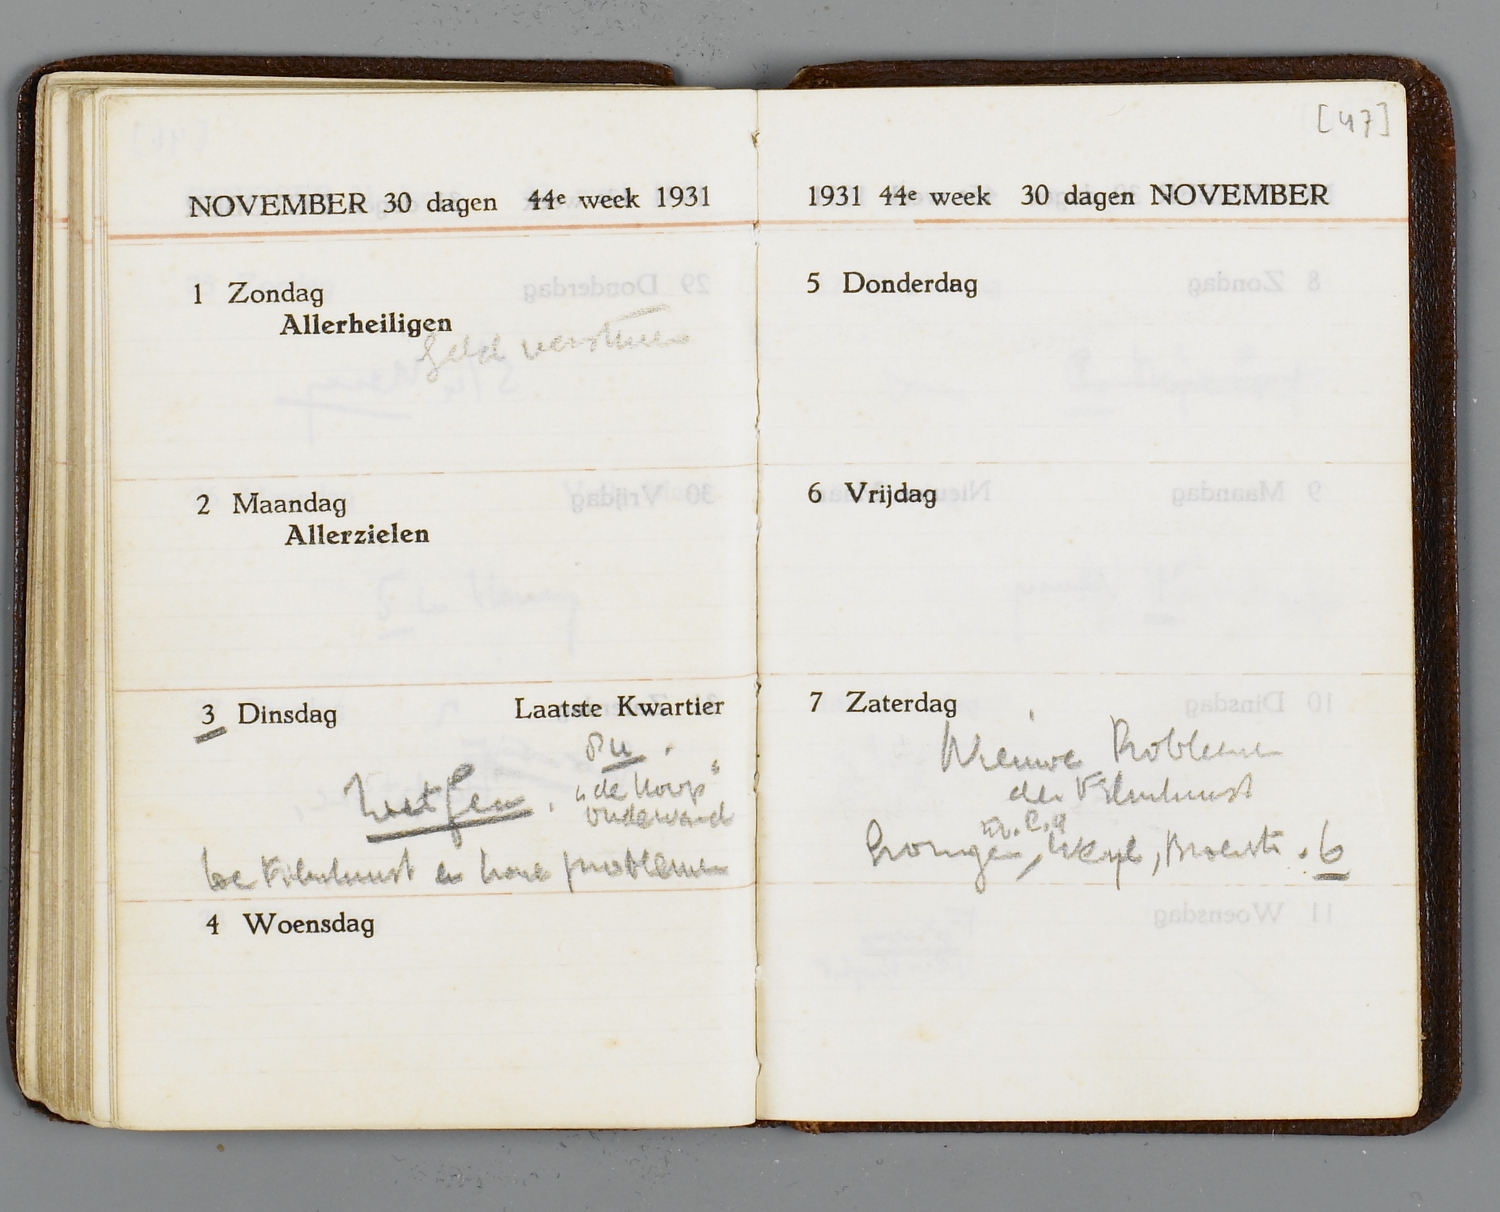 NOVEMBER 30 dagen 44e week 1931
1 Zondag
Allerheiligen
Geld versturen
2 Maandag
Allerzielen
3 Dinsdag Laatste Kwartier
8 u.
Zutfen. „de Hoop"
De Filmkunst en hare problemen
4 Woensdag
[47]
1931 44e week 30 dagen NOVEMBER
5 Donderdag
6 Vrijdag
7 Zaterdag
Nieuwe Problemen
der Filmkunst
6